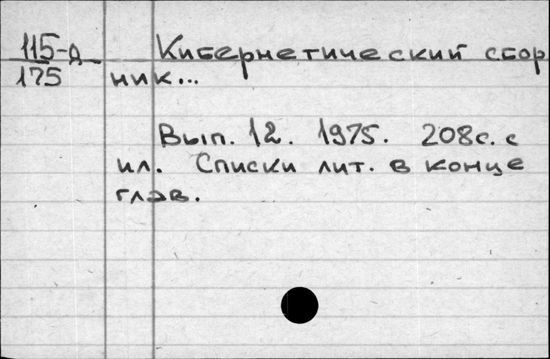 115-д Кибернетический сбор
175 ник...
Вып. 12. 1975. 208с. с
ил. Списки лит. в конце
глав.